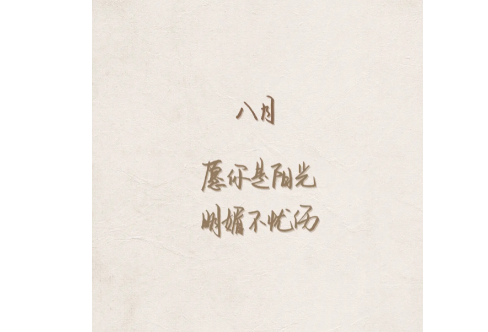 八月
愿你是阳光
明媚不忧伤